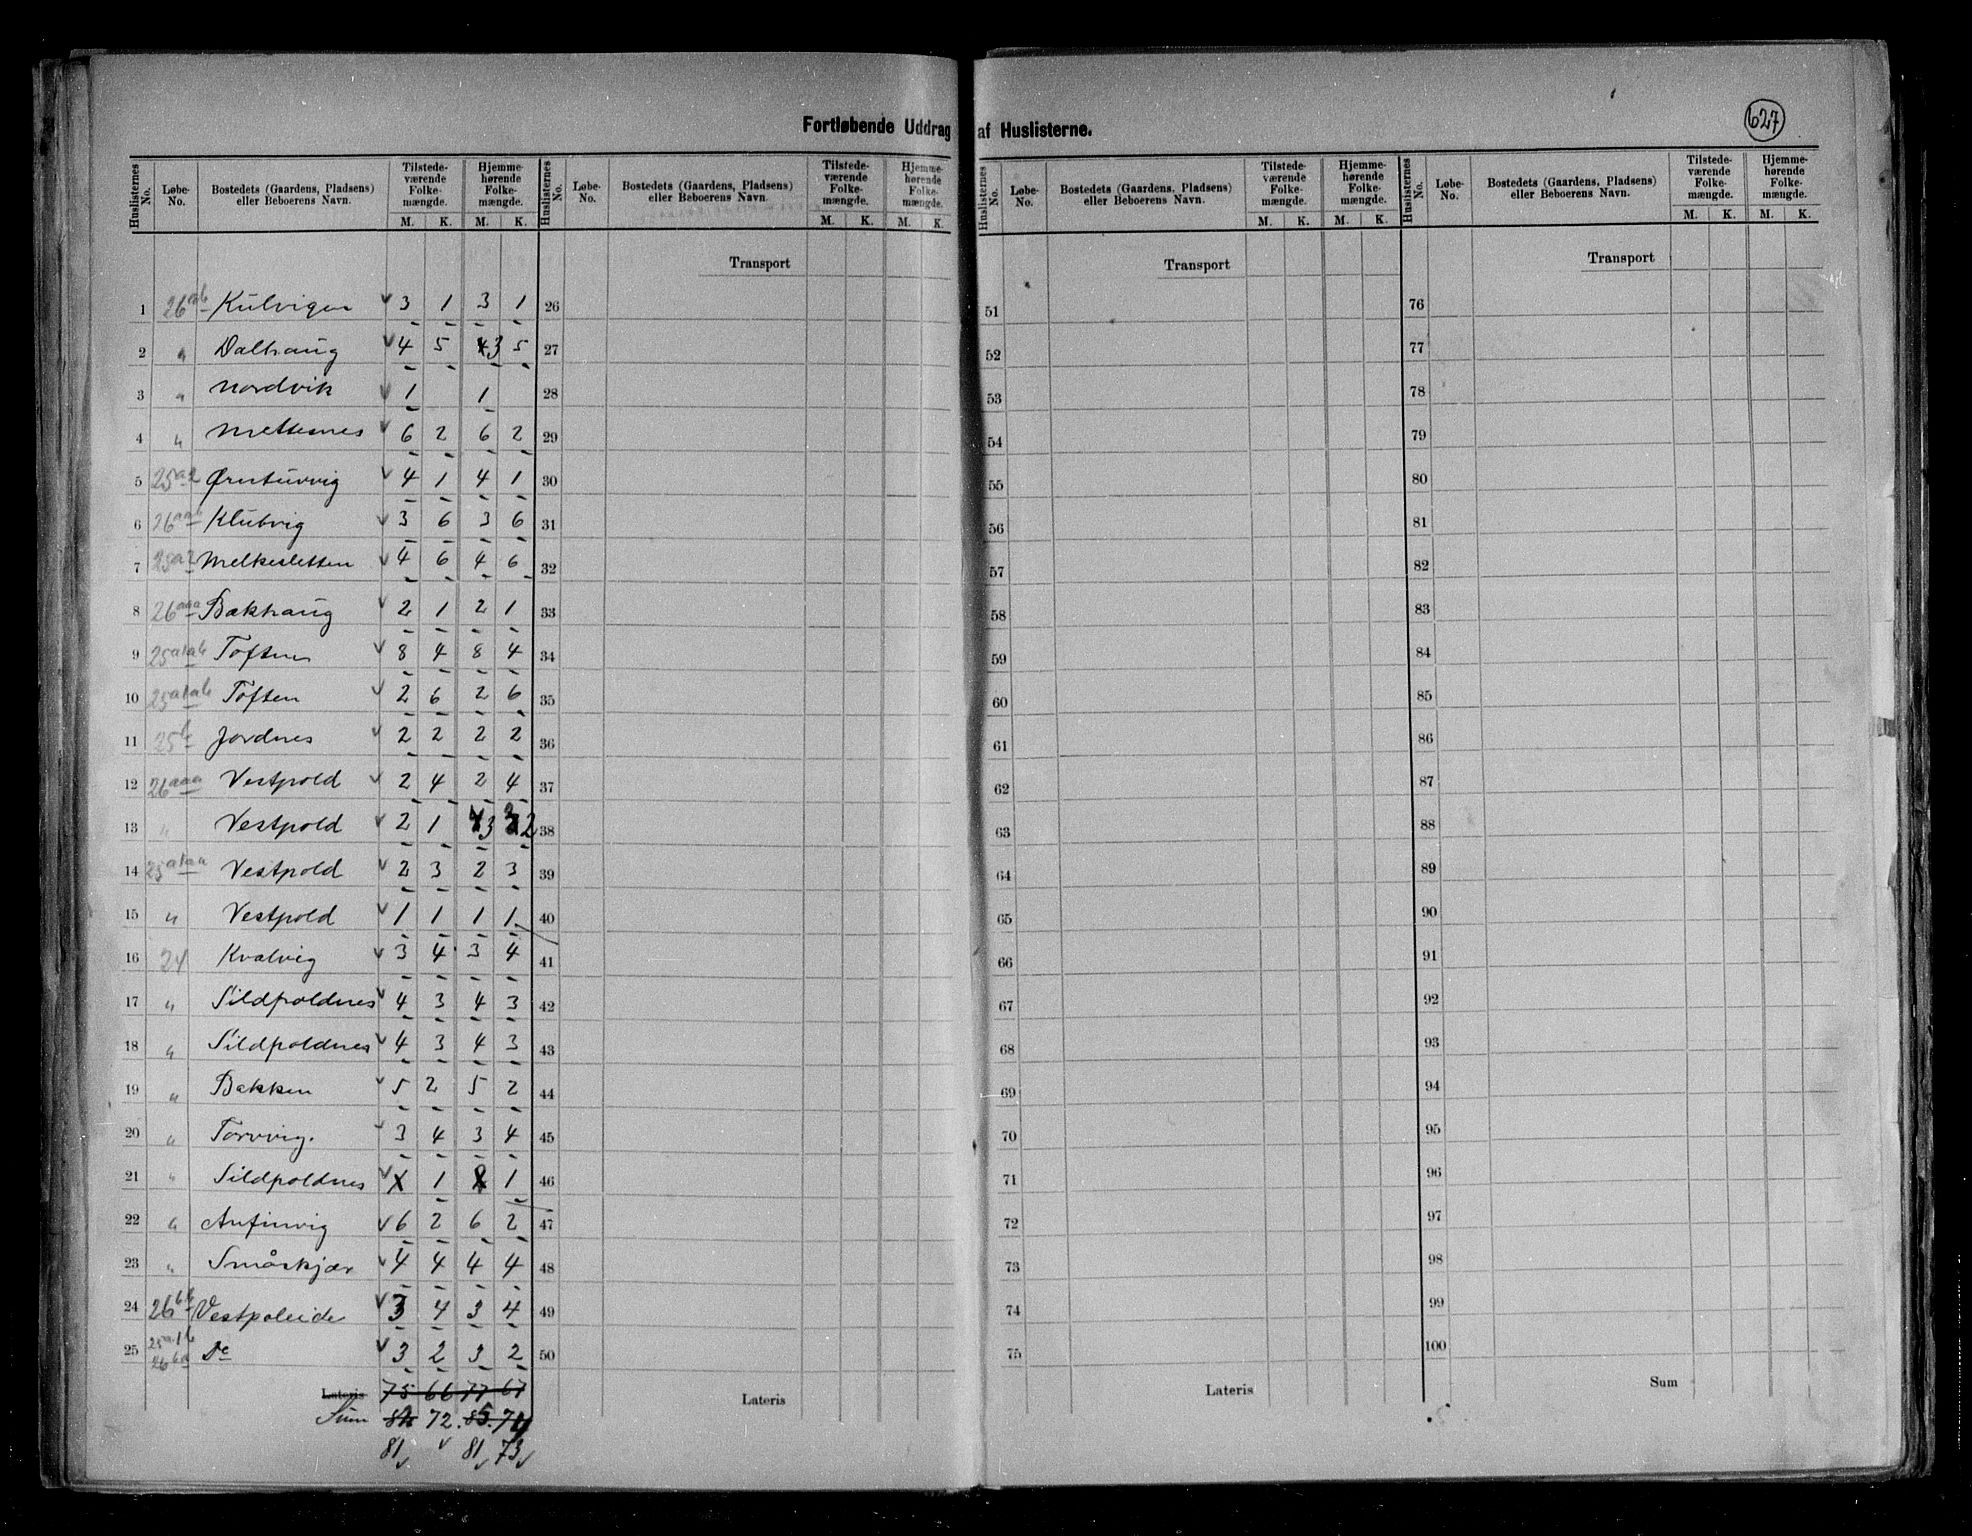 Fortløbende Uddrag af Huslisterne.
627
Huslisternes No. Løbe-No. Bostedets (Gaardens, Pladsens) eller Beboerens Navn. Tilstedeværende Folkemængde. M. K. Hjemmehørende Folkemængde. M. K.
Huslisternes No. Løbe-No. Bostedets (Gaardens, Pladsens) eller Beboerens Navn. Tilstedeværende Folkemængde. M. K. Hjemmehørende Folkemængde. M. K.
Huslisternes No. Løbe-No. Bostedets (Gaardens, Pladsens) eller Beboerens Navn. Tilstedeværende Folkemængde. M. K. Hjemmehørende Folkemængde. M. K.
Huslisternes No. Løbe-No. Bostedets (Gaardens, Pladsens) eller Beboerens Navn. Tilstedeværende Folkemængde. M. K. Hjemmehørende Folkemængde. M. K.
Transport Transport Transport
1 26 Kulvigen 3 1 3 1 26 51 76
2 " Dalhaug 4 5 4 3 5 27 52 77
3 " Nordvik 1 1 28 53 78
4 " Mettesnes 6 2 6 2 29 54 79
5 25a2 Ørntuvvig 4 1 4 1 30 55 80
6 26aab Klubvig 3 6 3 6 31 56 81
7 25a2 Melkesletten 4 6 4 6 32 57 82
8 26aaa Bakhaug 2 1 2 1 33 58 83
9 25a1ab Toftnes 8 4 8 4 34 59 84
10 25a1ab Toften 2 6 2 6 35 60 85
11 25b Jordnes 2 2 2 2 36 61 86
12 26aaa Vestpold 2 4 2 4 37 62 87
13 " Vestpold 2 1 3 2 38 63 88
14 25a1aa Vestpold 2 3 2 3 39 64 89
15 " Vestpold 1 1 1 1 40 65 90
16 24 Kvalvig 3 4 3 4 41 66 91
17 " Sildpoldnes 4 3 4 3 42 67 92
18 " Sildpoldnes 4 3 4 3 43 68 93
19 " Bakken 5 2 5 2 44 69 94
20 " Torvvig. 3 4 3 4 45 70 95
21 " Sildpoldnes 1 1 46 71 96
22 " Anfinvig 6 2 6 2 47 72 97
23 " Småskjær 4 4 4 4 48 73 98
24 26bb Vestpoleide 3 4 3 4 49 74 99
25 25a1b 26ba Do 3 2 3 2 50 75 100
Lateris 75 66 77 67 Lateris Lateris Sum
Sum 72. 85. 74
81 81 73